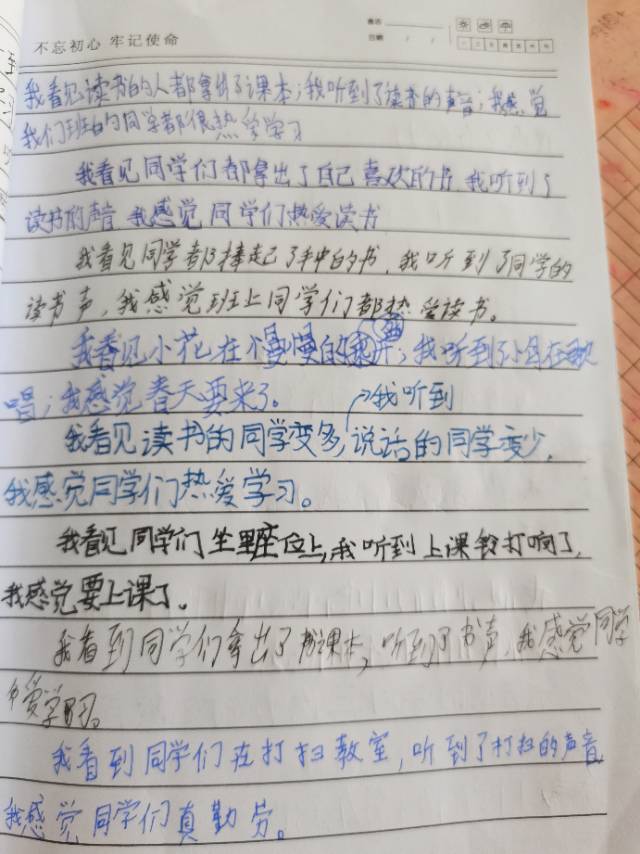 不忘初心 牢记使命
我看见读书的人都拿出了课本；我听到了读书的声音；我感觉
我们班的同学都很热爱学习
我看见同学们都拿出了自己喜欢的书 我听到了
读书的声音 我感觉同学们热爱读书
我看见同学都捧起了手中的书，我听到了同学的
读书声，我感觉班上同学们都热爱读书。
我看见小花在慢慢的开；我听到了小鸟在歌
唱；我感觉春天要来了。
我听到
我看见读书的同学变多，说话的同学变少，
我感觉同学们热爱学习。
我看见同学们坐里座位上，我听到上课铃打响了，
我感觉要上课了。
我看到同学们拿出了课本，听到了书声，我感觉同学
们爱学习。
我看到同学们在打扫教室，听到了打扫的声音
我感觉同学们真勤劳。